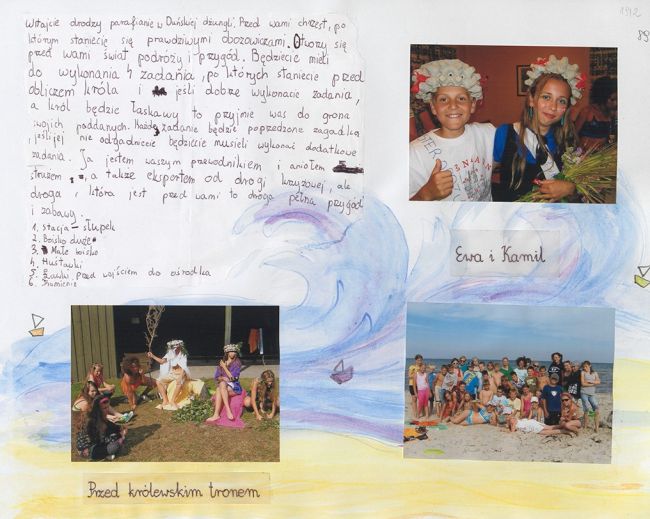 Witajcie drodzy parafianie w Duńskiej dżungli. Przed wami chrzest, po
którym staniecie się prawdziwymi obozowiczami. Otworzy się
przed wami świat podróży i przygód. Będziecie mieli
do wykonania 4 zadania, po których staniecie przed
obliczem króla i jeśli dobrze wykonacie zadania,
a król będzie łaskawy to przyjmie was do grona
swoich poddanych. Każde zadanie będzie poprzedzone zagadką
, jeśli jej nie odgadniecie będziecie musieli wykonać dodatkowe
zadania. Ja jestem waszym przewodnikiem i aniołem
stróżem, a także ekspertem od drogi krzyżowej, ale
droga, która jest przed wami to droga pełna przygód
i zabawy.
1. stacja - słupek
2. Boisko duże
3. Małe boisko
4. Huśtawki
5. Ławki przed wejściem do ośrodka
6.
Ewa i Kamil
Przed królewskim tronem
1912
89